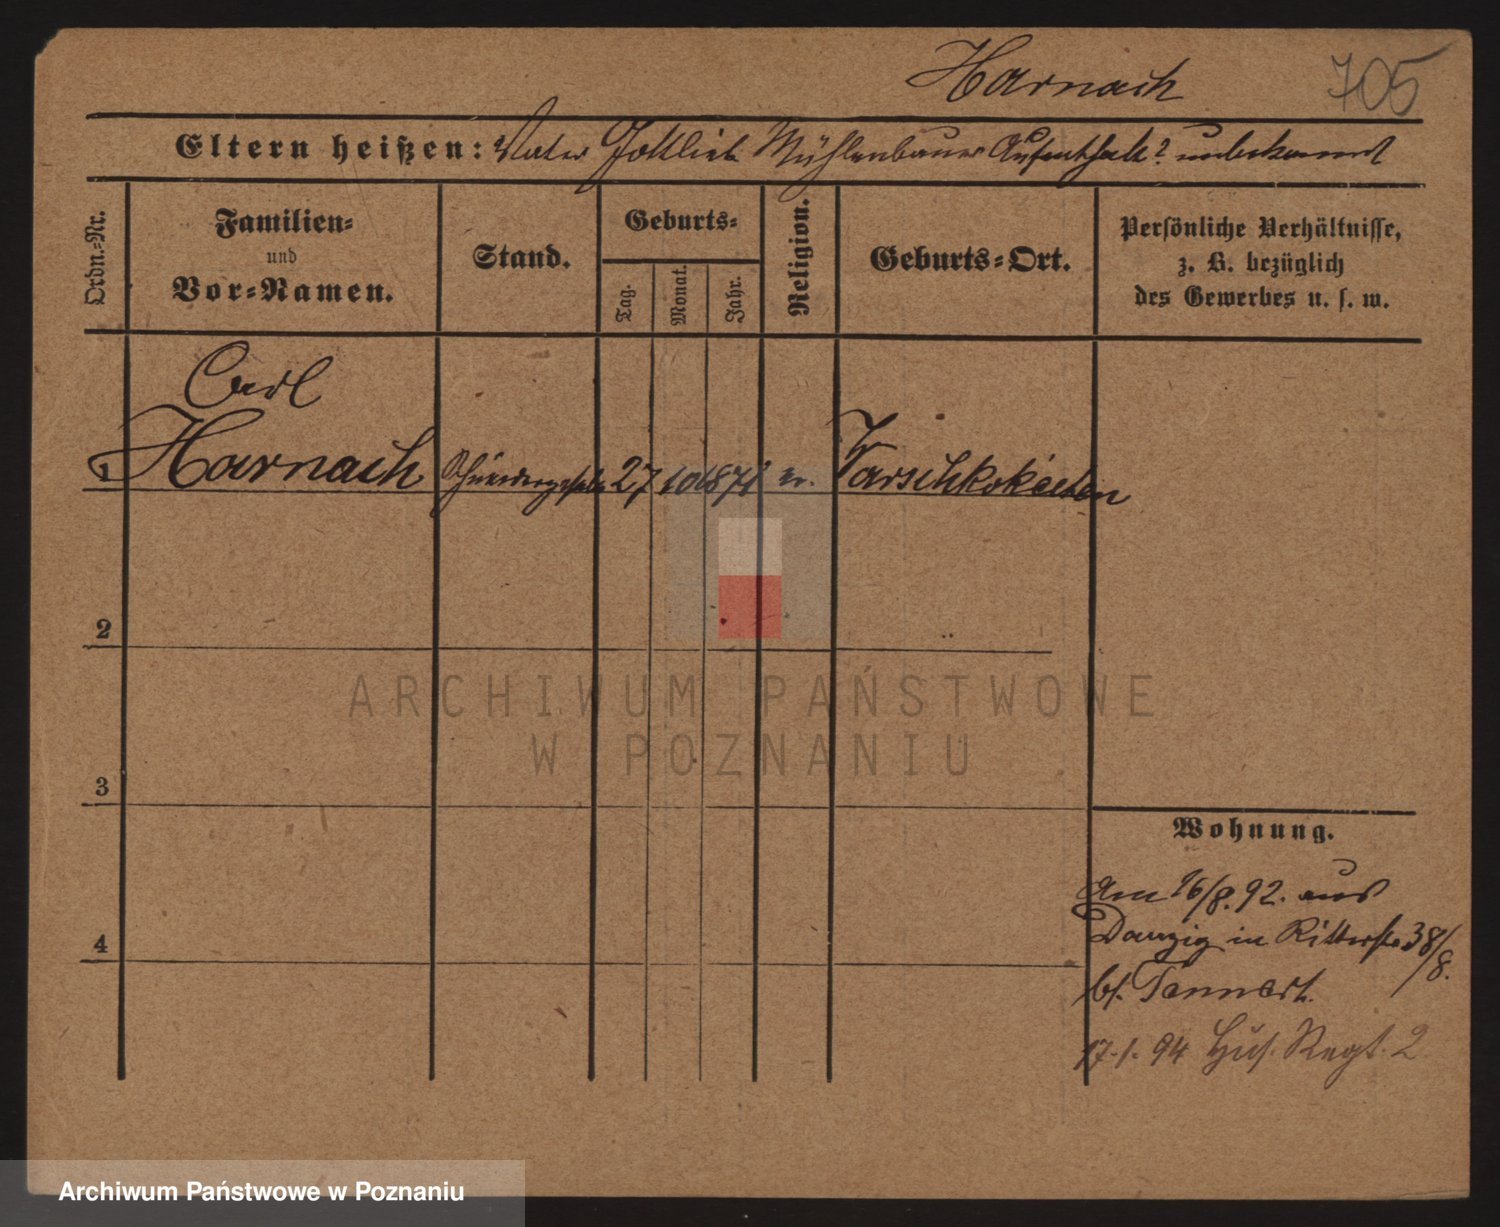 Harnach 705
Eltern heißen: Vater Gottlieb Mühlenbauer Aufenthalt? unbekannt
Ordn.-Nr.
Familien-
und
Vor-Namen.
Stand.
Geburts-
Tag.
Monat.
Jahr.
Religion.
Geburts-Ort.
Persönliche Verhältnisse,
z. B. bezüglich
des Gewerbes u. s. w.
Carl
1 Harnach 27 10 1871 ev. Warschkokeiten
2
3
4
Wohnung.
Am 26/8. 92. aus
Danzig in Ritterstr 38/8.
bf. Tennert.
17.1.94 Hus. Regt. 2
ARCHIWUM PAŃSTWOWE
W POZNANIU
Archiwum Państwowe w Poznaniu